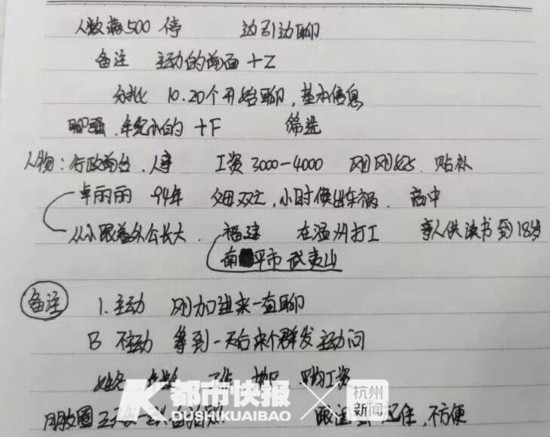 人数满500 停 边引边聊
备注 主动的前面 +Z
分批 10.20个开始聊，基本信息
年纪小的 +F 筛选
人物：行政前台，人事 工资3000-4000 刚刚好 贴补
卓丽丽 94年 父母双亡，小时候出车祸 高中
从小跟着外公长大 福建 在温州打工 家人供读书到18岁
南平市 武夷山
备注 1. 主动 刚加进来一直聊
B 不主动 等到一天后来个群发主动问
姓名 年龄 工作 工资
都市快报 杭州新闻
DUSHIKUAIBAO
朋友圈 不方便